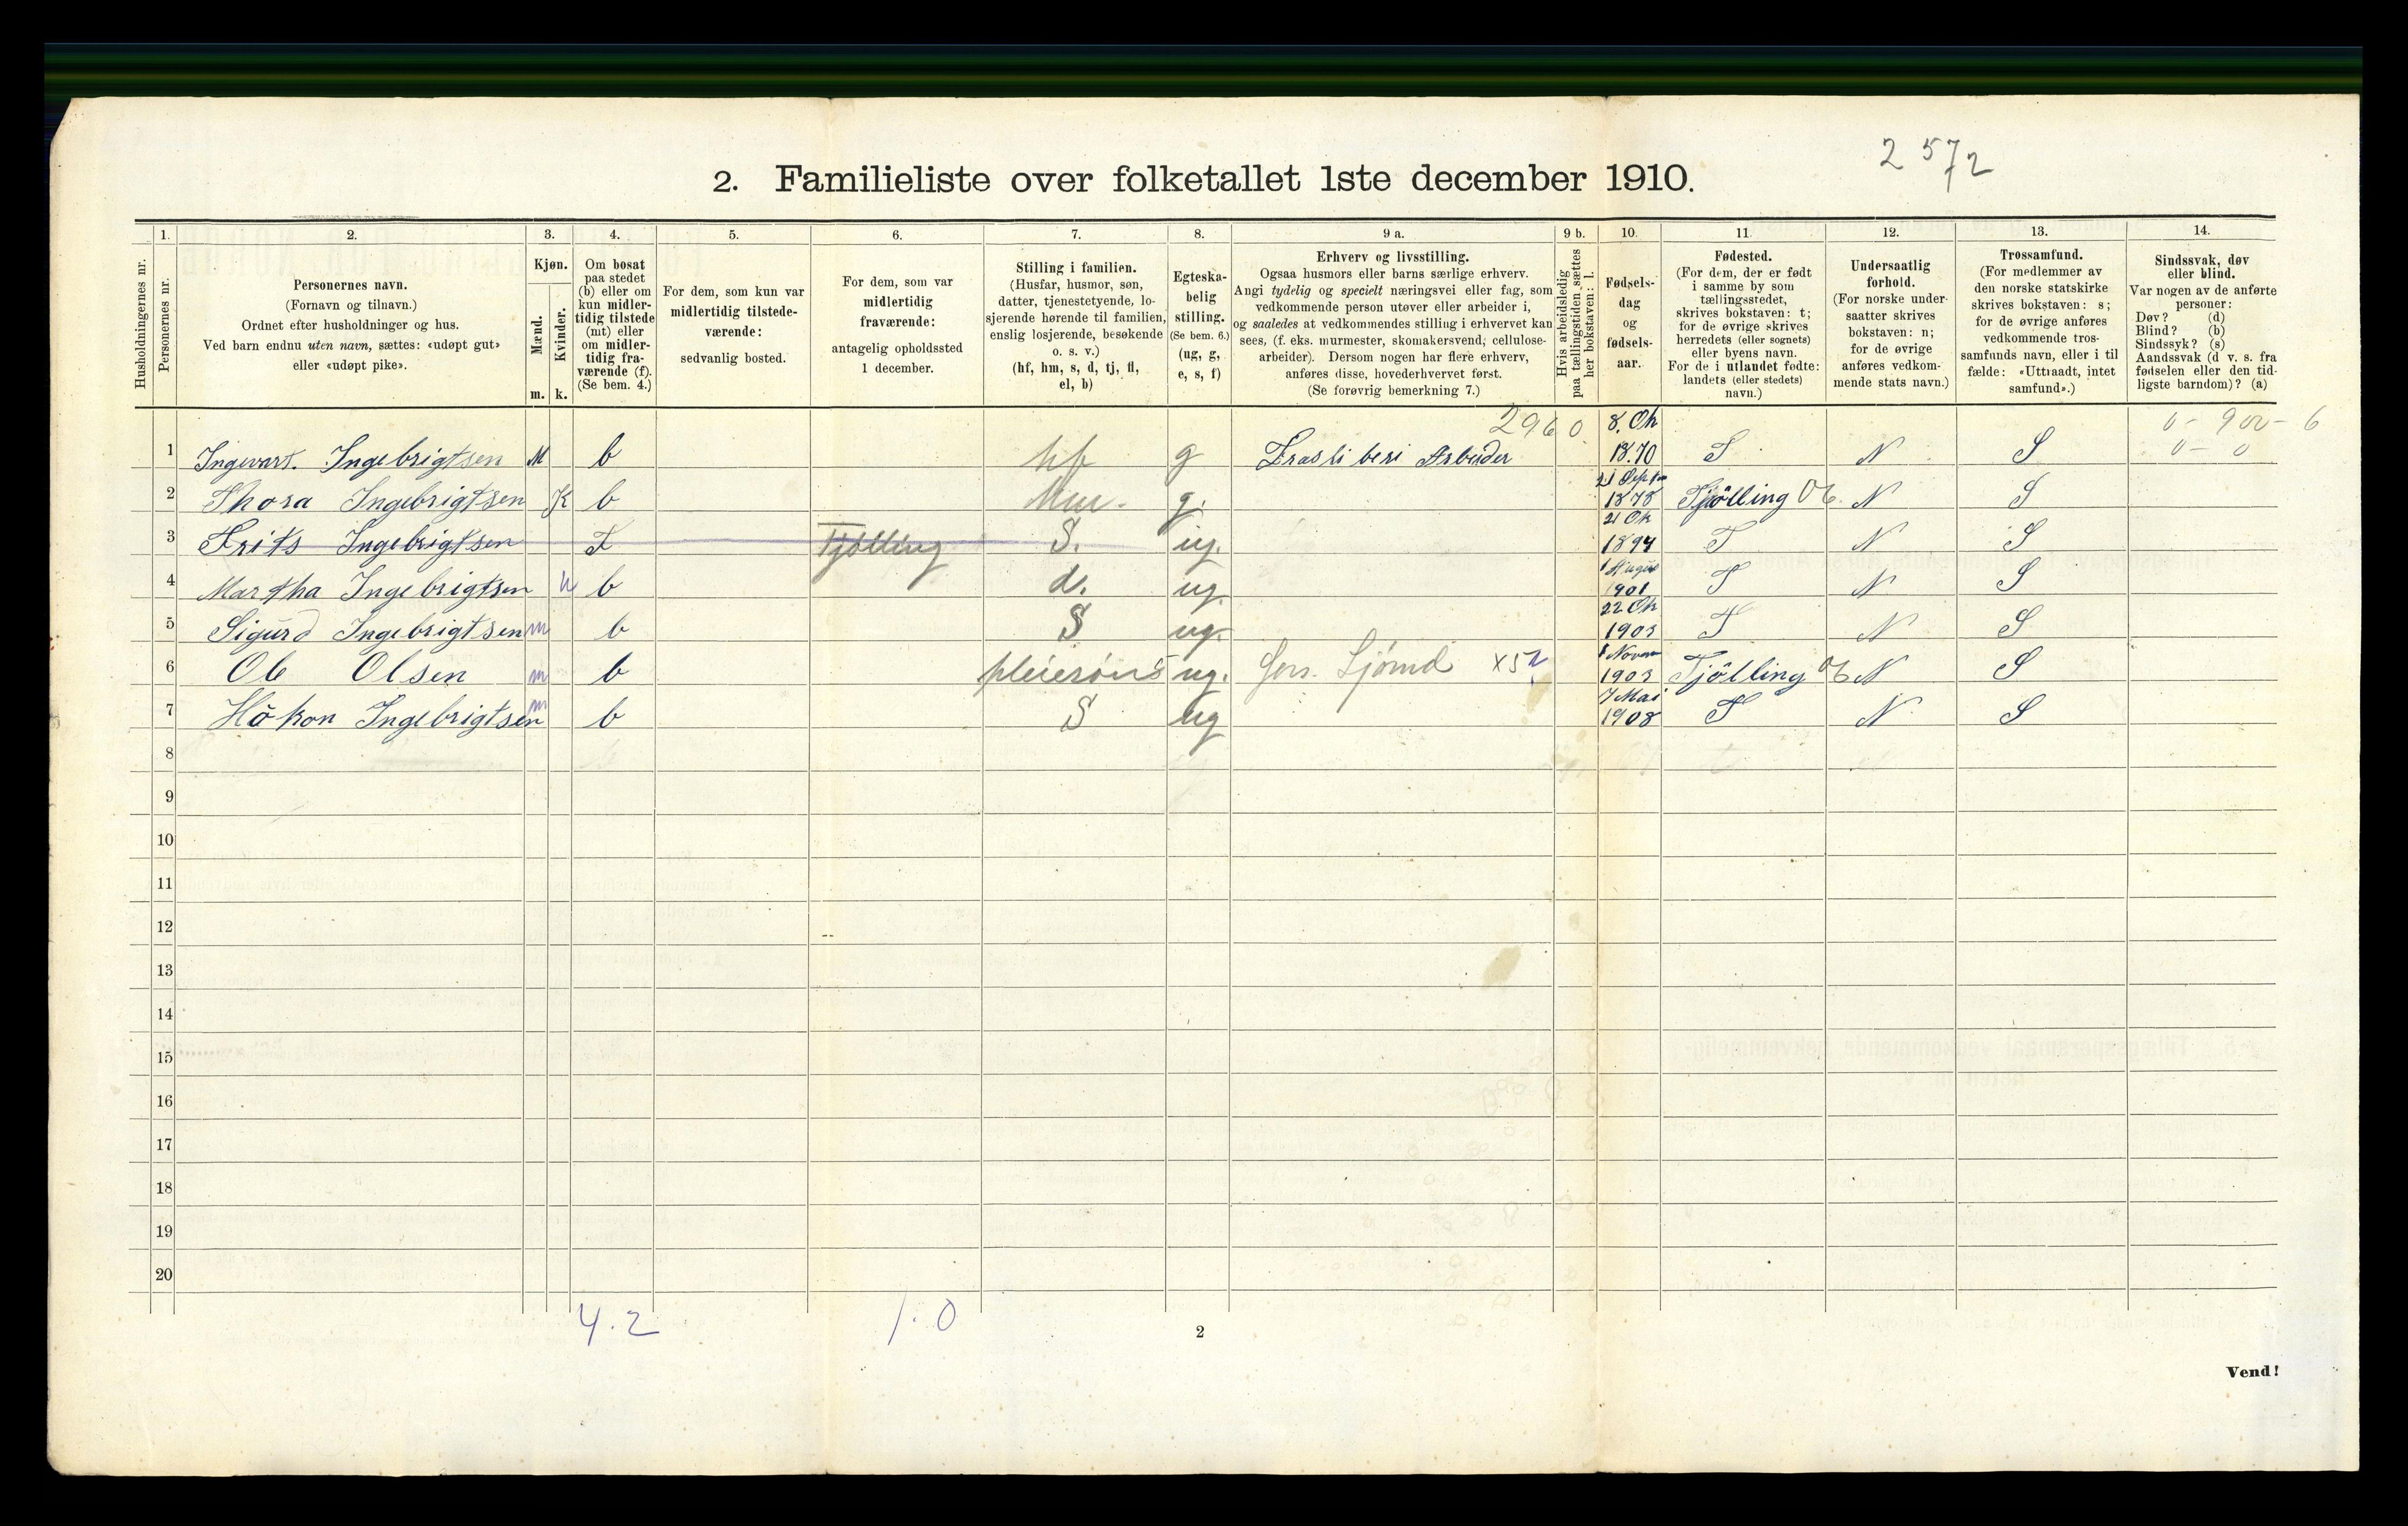 2 572
2. Familieliste over folketallet 1ste december 1910.
Husholdningernes nr.
1.
Personernes nr.
2.
Personernes navn.
(Fornavn og tilnavn.)
Ordnet efter husholdninger og hus.
Ved barn endnu uten navn, sættes: «udøpt gut»
eller «udøpt pike».
3.
Kjøn.
Mænd.
Kvinder.
m. k.
4.
Om bosat
paa stedet
(b) eller om
kun midler-
tidig tilstede
(mt) eller
om midler-
tidig fra-
værende (f).
(Se bem. 4.)
5.
For dem, som kun var
midlertidig tilstede-
værende:
sedvanlig bosted.
6.
For dem, som var
midlertidig
fraværende:
antagelig opholdssted
1 december.
7.
Stilling i familien.
(Husfar, husmor, søn,
datter, tjenestetyende, lo-
sjerende hørende til familien,
enslig losjerende, besøkende
o. s. v.)
(hf, hm, s, d, tj, fl,
el, b)
8.
Egteska-
belig
stilling.
(Se bem. 6.)
(ug, g,
e, s, f)
9 a.
Erhverv og livsstilling.
Ogsaa husmors eller barns særlige erhverv.
Angi tydelig og specielt næringsvei eller fag, som
vedkommende person utøver eller arbeider i,
og saaledes at vedkommendes stilling i erhvervet kan
sees, (f. eks. murmester, skomakersvend, cellulose-
arbeider). Dersom nogen har flere erhverv,
anføres disse, hovederhvervet først.
(Se forøvrig bemerkning 7.)
9 b.
Hvis arbeidsledig
paa tællingstiden, sættes
her bokstaven: l.
10.
Fødsels-
dag
og
fødsels-
aar.
11.
Fødested.
(For dem, der er født
i samme by som
tællingsstedet,
skrives bokstaven: t;
for de øvrige skrives
herredets (eller sognets)
eller byens navn.
For de i utlandet fødte:
landets (eller stedets)
navn.)
12.
Undersaatlig
forhold.
(For norske under-
saatter skrives
bokstaven: n;
for de øvrige
anføres vedkom-
mende stats navn.)
13.
Trossamfund.
(For medlemmer av
den norske statskirke
skrives bokstaven: s;
for de øvrige anføres
vedkommende tros-
samfunds navn, eller i til
fælde: «Uttraadt, intet
samfund».)
14.
Sindssvak, døv
eller blind.
Var nogen av de anførte
personer:
Døv? (d)
Blind? (b)
Sindssyk? (s)
Aandssvak (d v. s. fra
fødselen eller den tid-
ligste barndom)? (a)
2960 0 - 900 - 6
0 - 0
1 Ingvart. Ingebrigtsen M b hf g Arbeider 8. Ok 1870 T N S
2 Thora Ingebrigtsen K b g. 21 Sept 1878 Tjölling 06. N S
3 Frits Ingebrigtsen F Tjölling S. ug. 21 Ok 1894 T N S
4 Martha Ingebrigtsen b d. ug. 1 1901 T N S
5 Sigurd Ingebrigtsen m b S ug. 22 Ok 1903 T N S
6 Ole Olsen m b pleiesön ug. X52 1 Novem 1903 Tjölling 06 N S
7 Håkon Ingebrigtsen m b S ug 7 Mai 1908 T N S
8
9
10
11
12
13
14
15
16
17
18
19
20
4.2 1.0
2
Vend!